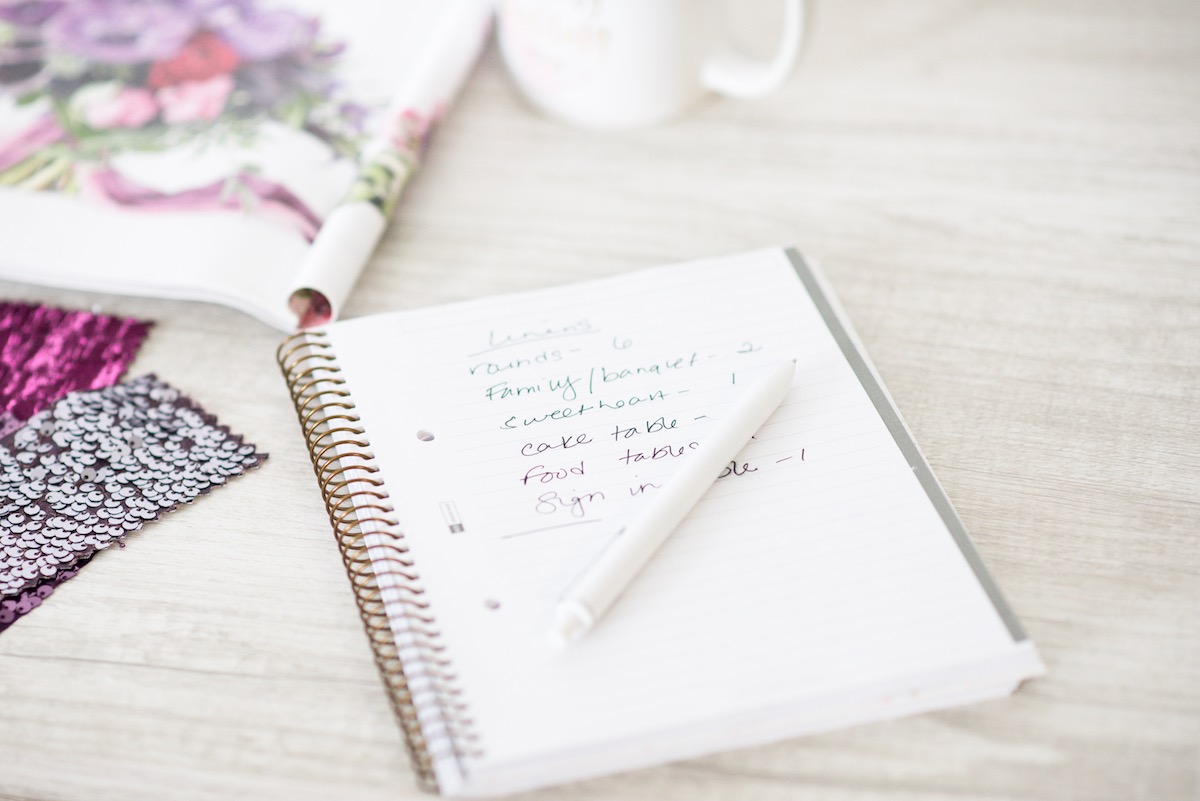 Linens
rounds - 6
Family/banquet - 2
sweetheart - 1
cake table -
food tables
Sign in ble - 1